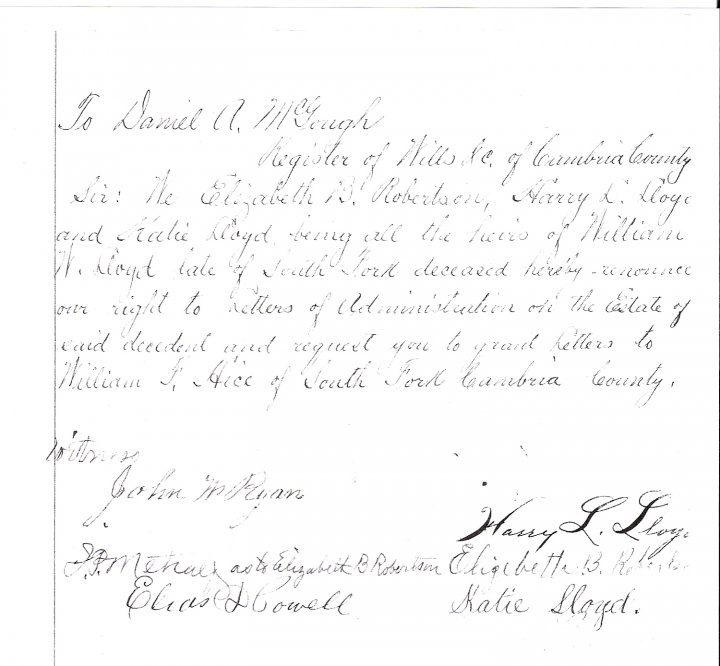 To Daniel A. McGough
Register of Wills &c. of Cambria County
Sir: We Elizabeth B. Robertson, Harry L. Lloyd
and Katie Lloyd being all the heirs of William
W. Lloyd late of South Fork deceased hereby renounce
our right to Letters of Administration on the Estate of
said decedent and request you to grant Letters to
William F. Hice of South Fork Cambria County.
Witness
John M Ryan
Harry L. Lloyd
as to Elizabeth B Robertson Elizabeth B. Roberts
Elias D Cowell Katie Lloyd.